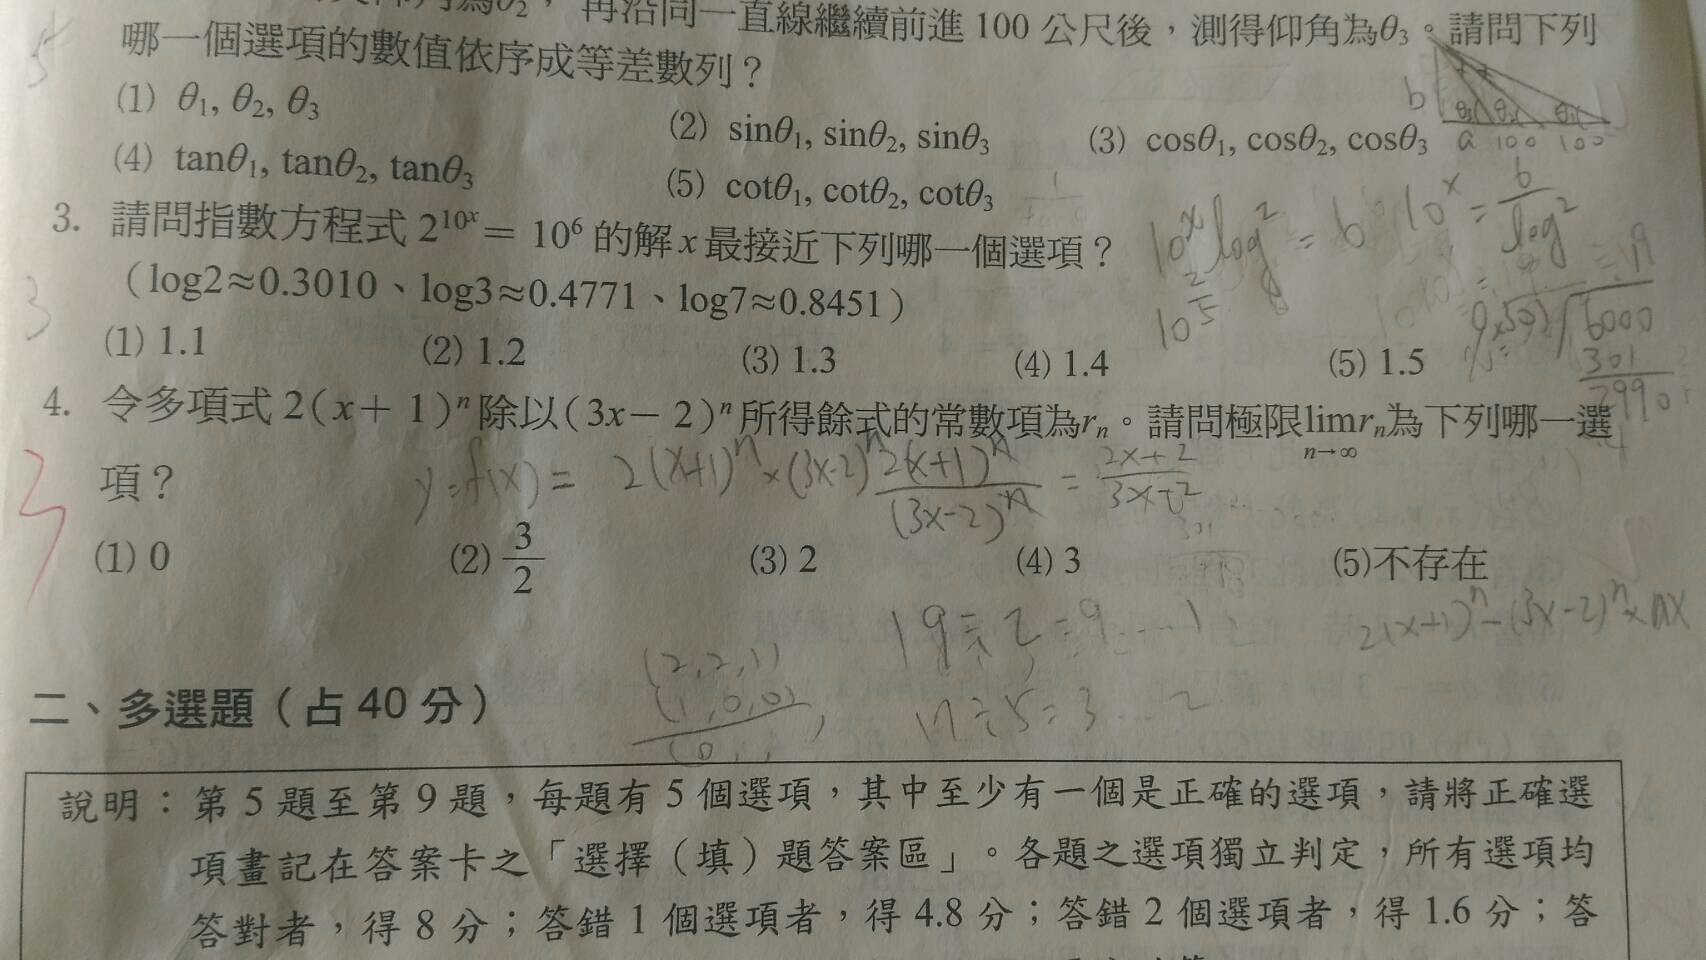 再沿同一直線繼續前進 100 公尺後,測得仰角為θ₃。請問下列
哪一個選項的數值依序成等差數列?
(1) θ₁, θ₂, θ₃
(2) sinθ₁, sinθ₂, sinθ₃
(3) cosθ₁, cosθ₂, cosθ₃
(4) tanθ₁, tanθ₂, tanθ₃
(5) cotθ₁, cotθ₂, cotθ₃
b
a 100 100
3. 請問指數方程式 2^{10^x} = 10⁶ 的解 x 最接近下列哪一個選項?
(log2≈0.3010、log3≈0.4771、log7≈0.8451)
(1) 1.1 (2) 1.2 (3) 1.3 (4) 1.4 (5) 1.5
10^x log2 = 6 10^x = 6/log2
6000
301
2990
3
4. 令多項式 2(x+1)ⁿ 除以 (3x−2)ⁿ 所得餘式的常數項為rₙ。請問極限 lim_{n→∞} rₙ 為下列哪一選
項?
y=f(x) = 2(x+1)ⁿ × (3x-2)ⁿ 2(x+1)ⁿ/(3x-2)ⁿ = 2x+2/3x-2
(1) 0 (2) 3/2 (3) 2 (4) 3 (5)不存在
3
19÷2=9...1
17÷5=3...2
(2,2,1)
(1,0,0)
二、多選題(占 40 分)
說明:第 5 題至第 9 題,每題有 5 個選項,其中至少有一個是正確的選項,請將正確選
項畫記在答案卡之「選擇(填)題答案區」。各題之選項獨立判定,所有選項均
答對者,得 8 分;答錯 1 個選項者,得 4.8 分;答錯 2 個選項者,得 1.6 分;答